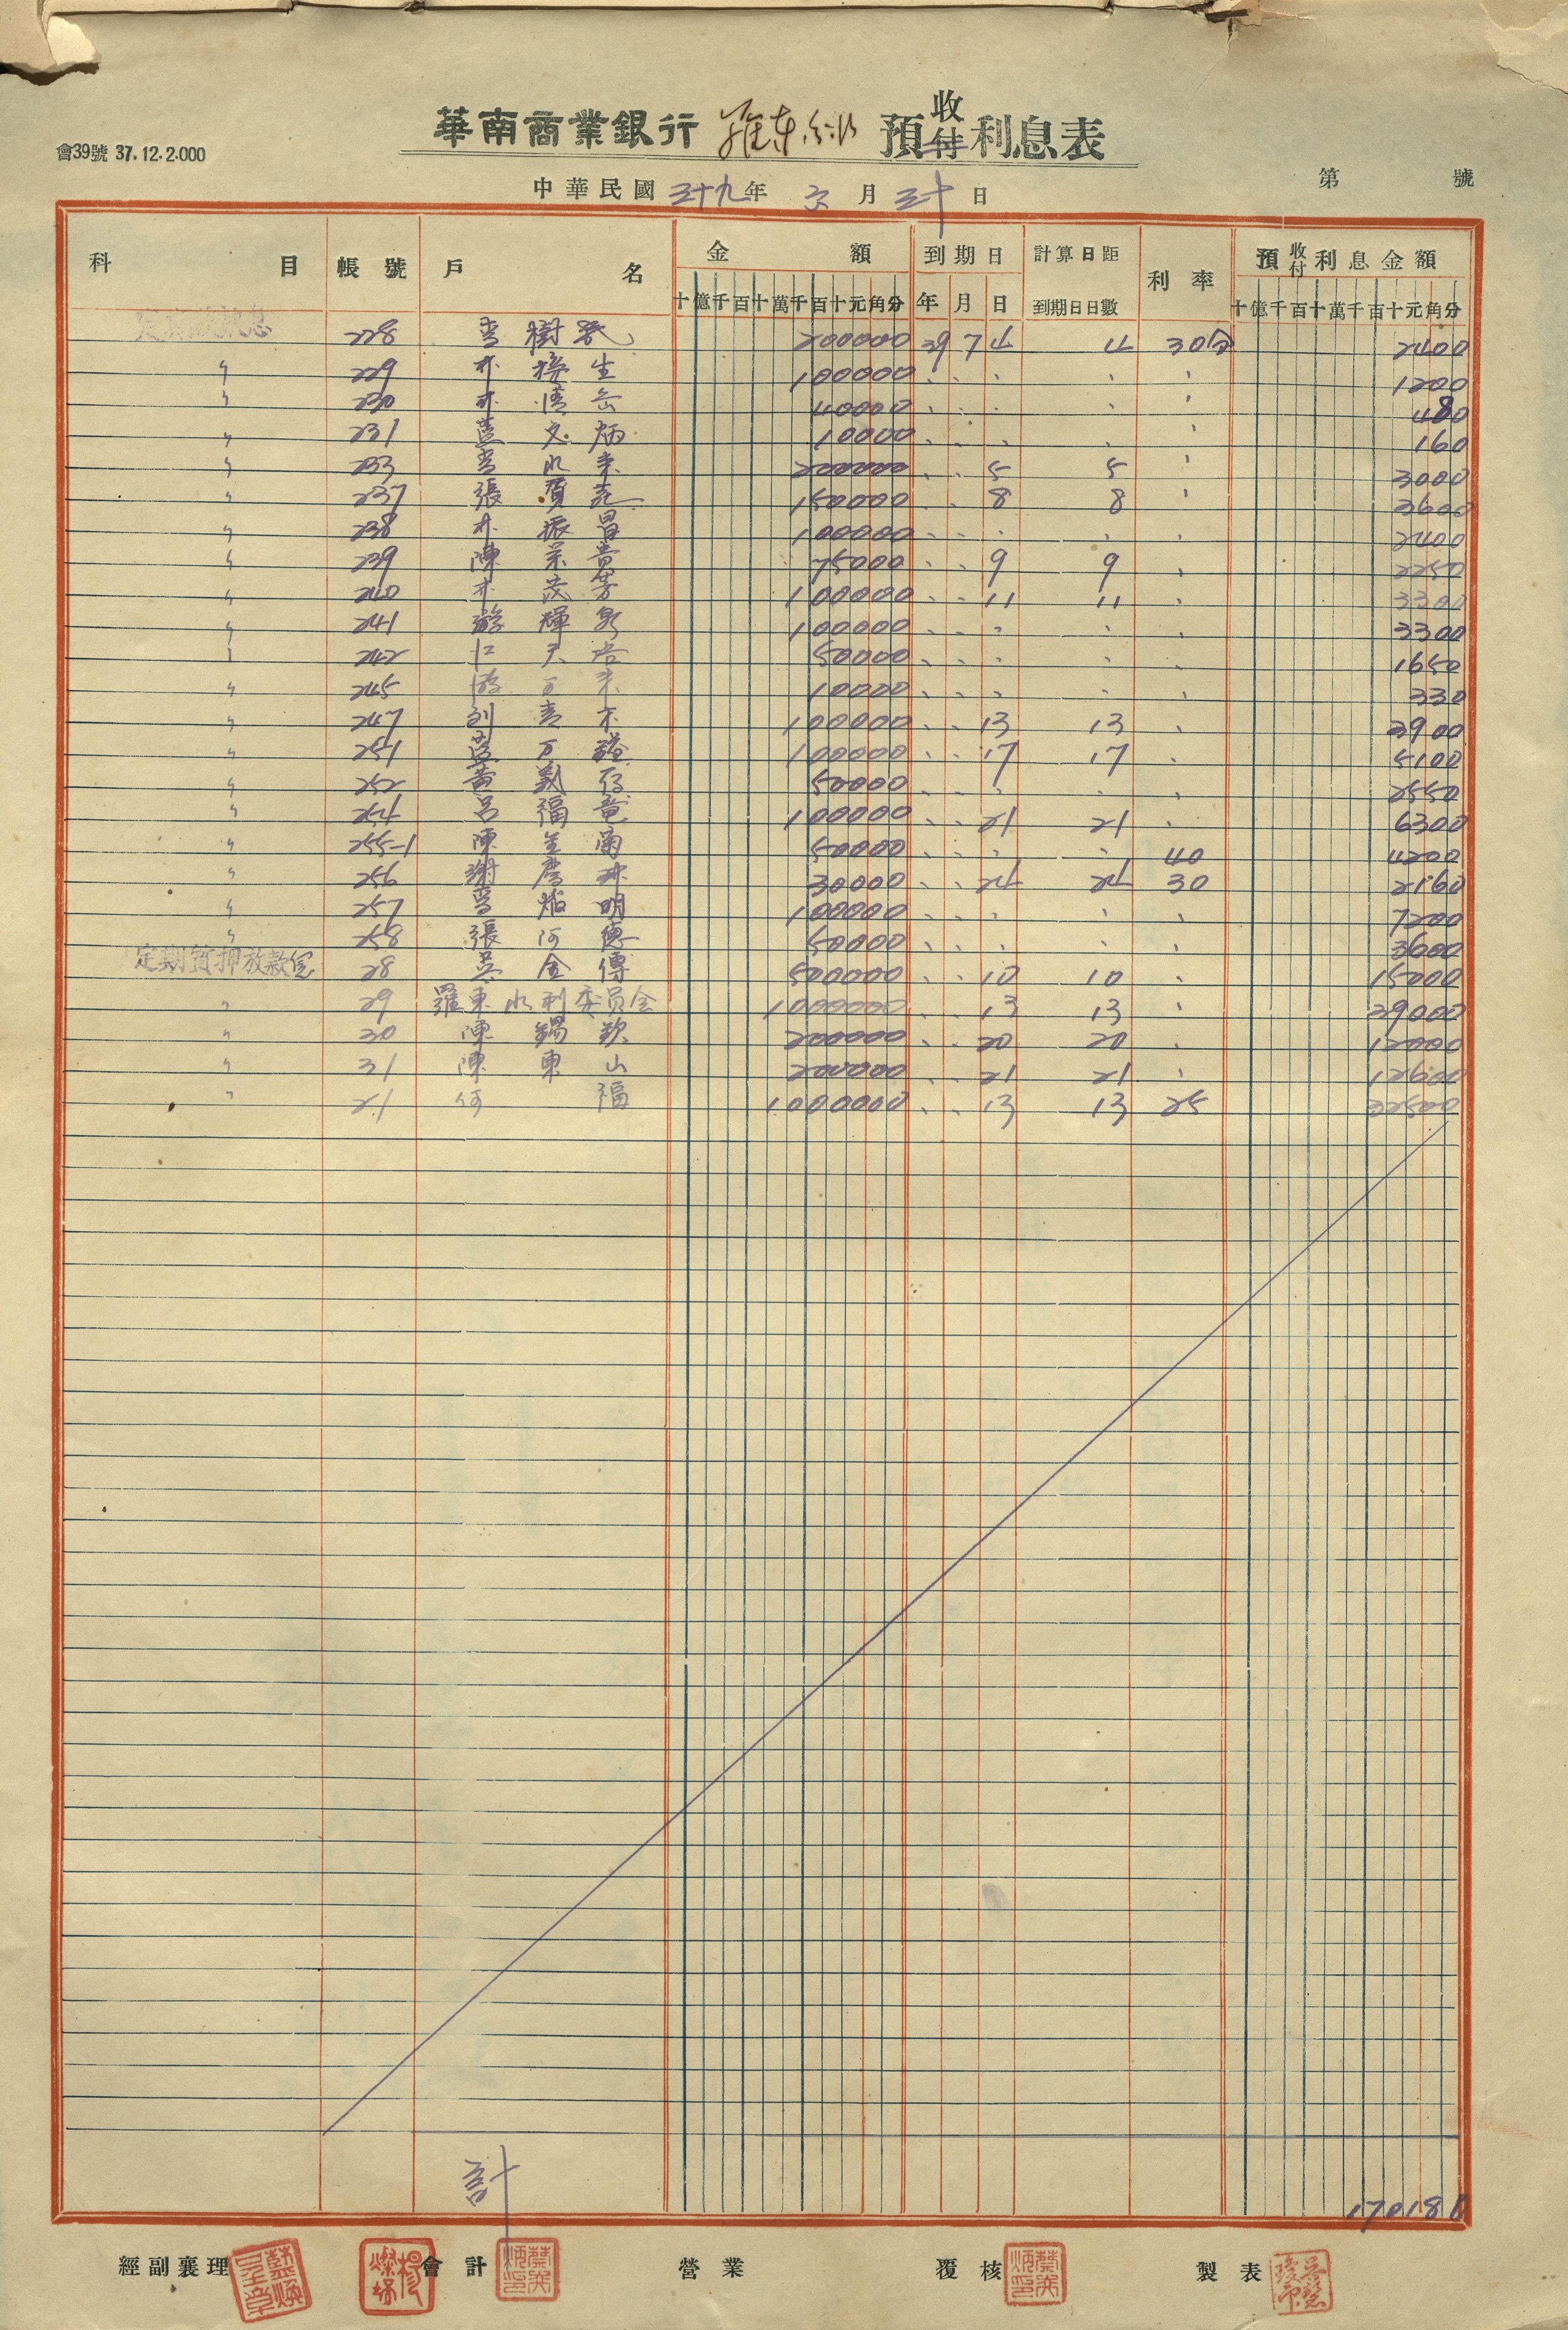 華南商業銀行 羅東分行 預收付利息表
會39號 37.12.2.000
中華民國三十九年 六月 三十日
第 號
科目 帳號 戶名 金額 到期日 計算日距到期日日數 利率 預收付利息金額
十億千百十萬千百十元角分 年 月 日 十億千百十萬千百十元角分
228 樹 200000 39 7 4 4 30分 2400
〃 229 生 100000 〃 〃 〃 〃 〃 1200
〃 230 40000 〃 〃 〃 〃 〃 480
〃 231 藍文炳 10000 〃 〃 〃 〃 〃 160
〃 233 水來 200000 〃 〃 5 5 〃 3000
〃 237 張 150000 〃 〃 8 8 〃 3600
〃 238 林振昌 100000 〃 〃 〃 〃 〃 2400
〃 239 陳 貴 75000 〃 〃 9 9 〃 2250
〃 240 林茂芳 100000 〃 〃 11 11 〃 3300
〃 241 游輝泉 100000 〃 〃 〃 〃 〃 3300
〃 242 江 50000 〃 〃 〃 〃 〃 1650
〃 245 游万來 10000 〃 〃 〃 〃 〃 330
〃 247 100000 〃 〃 13 13 〃 3900
〃 251 藍万 100000 〃 〃 17 17 〃 5100
〃 252 黃 50000 〃 〃 〃 〃 〃 2550
〃 254 呂福竜 100000 〃 〃 21 21 〃 6300
〃 255-1 陳金 50000 〃 〃 〃 〃 40 4200
〃 256 謝 30000 〃 〃 24 24 30 2160
〃 257 明 100000 〃 〃 〃 〃 〃 7200
〃 258 張阿德 50000 〃 〃 〃 〃 〃 3600
定期質押放款息 28 吳金傳 500000 〃 〃 10 10 〃 15000
〃 29 羅東水利委員会 1000000 〃 〃 13 13 〃 39000
〃 30 陳錫欽 200000 〃 〃 20 20 〃 12000
〃 31 陳東山 200000 〃 〃 21 21 〃 12600
〃 21 何福 1000000 〃 〃 13 13 25 32500
計 170181
經副襄理 會計 營業 覆核 製表